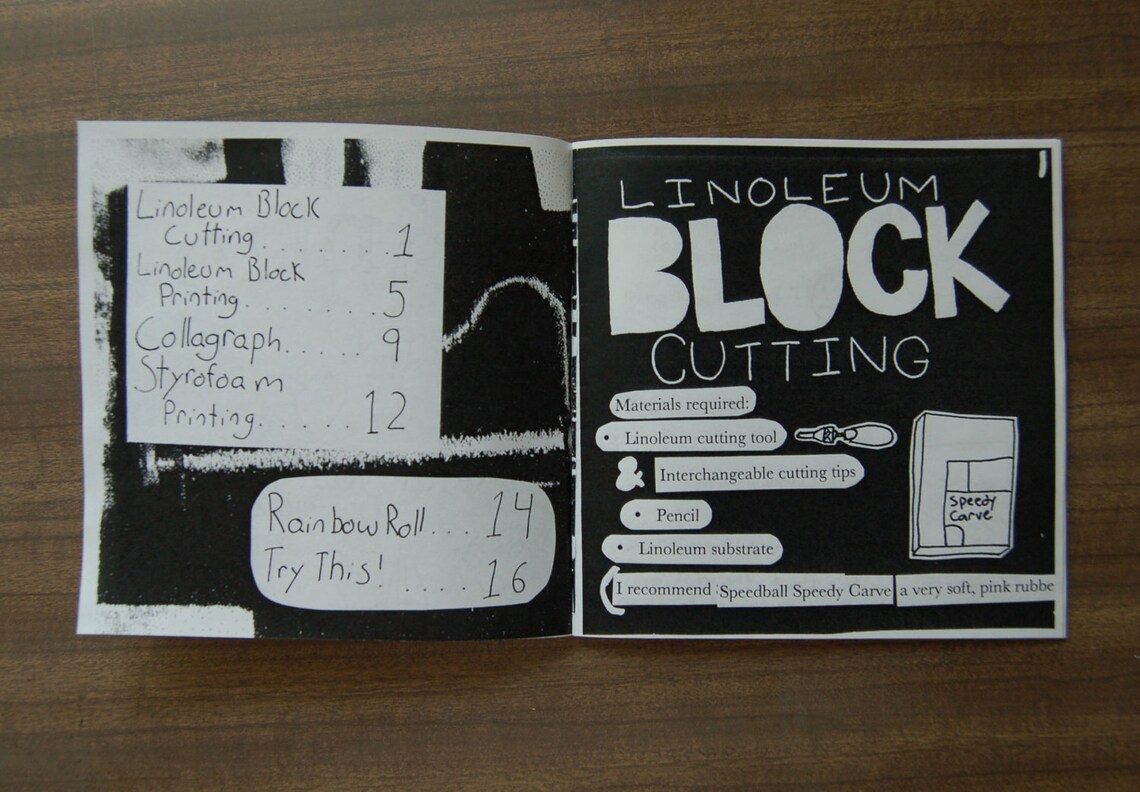 Linoleum Block
Cutting........1
Linoleum Block
Printing........5
Collagraph...... 9
Styrofoam
Printing......12
Rainbow Roll... 14
Try This! .... 16
1
LINOLEUM
BLOCK
CUTTING
Materials required:
• Linoleum cutting tool
& Interchangeable cutting tips
• Pencil
• Linoleum substrate
Speedy
Carve
(I recommend Speedball Speedy Carve a very soft, pink rubbe